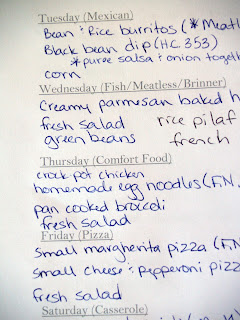 Tuesday (Mexican)
Bean & Rice burritos (*Meatl
Black bean dip (HC 353)
* puree salsa & onion togeth
corn
Wednesday (Fish/Meatless/Brinner)
Creamy parmesan baked h
fresh salad rice pilaf
green beans french
Thursday (Comfort Food)
crock pot chicken
homemade egg noodles (F.N.
pan cooked brocoli
fresh salad
Friday (Pizza)
small margherita pizza (F.N
small cheese & pepperoni pizz
fresh salad
Saturday (Casserole)